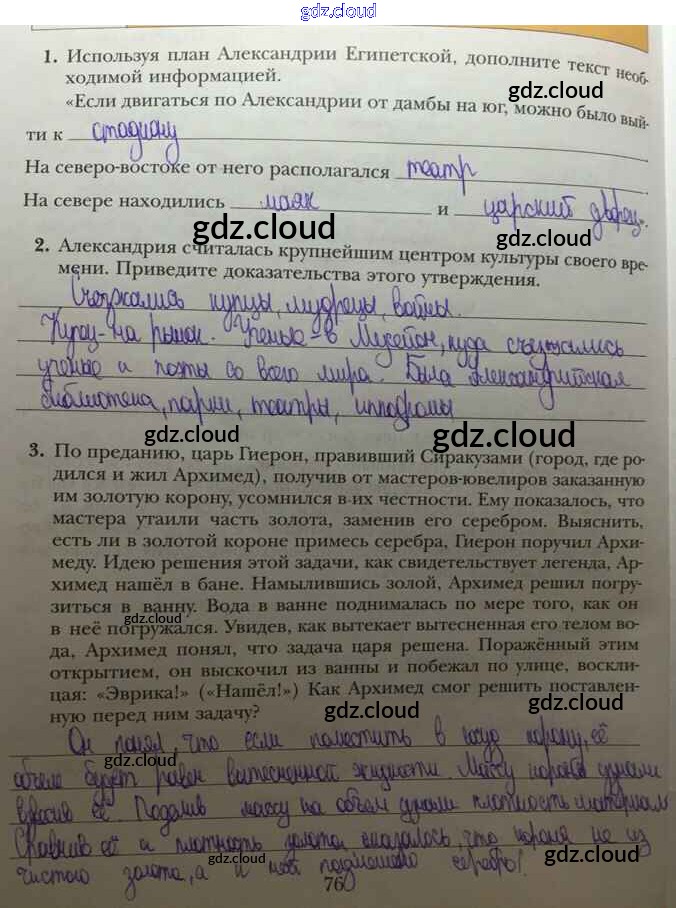 gdz.cloud
1. Используя план Александрии Египетской, дополните текст необ-
ходимой информацией.
gdz.cloud
«Если двигаться по Александрии от дамбы на юг, можно было вый-
gdz.cloud
ти к стадиону
На северо-востоке от него располагался театр.
На севере находились маяк и царский дворец».
gdz.cloud
gdz.cloud
2. Александрия считалась крупнейшим центром культуры своего вре-
мени. Приведите доказательства этого утверждения.
Съезжались купцы, мудрецы, войны.
Купцы - на рынок. Ученые - в Музейон, куда съезжались
ученые и поэты со всего мира. Была Александрийская
библиотека, парки, театры, ипподромы
gdz.cloud
gdz.cloud
3. По преданию, царь Гиерон, правивший Сиракузами (город, где ро-
дился и жил Архимед), получив от мастеров-ювелиров заказанную
им золотую корону, усомнился в их честности. Ему показалось, что
мастера утаили часть золота, заменив его серебром. Выяснить,
есть ли в золотой короне примесь серебра, Гиерон поручил Архи-
меду. Идею решения этой задачи, как свидетельствует легенда, Ар-
химед нашёл в бане. Намылившись золой, Архимед решил погру-
зиться в ванну. Вода в ванне поднималась по мере того, как он
gdz.cloud
в неё погружался. Увидев, как вытекает вытесненная его телом во-
да, Архимед понял, что задача царя решена. Поражённый этим
открытием, он выскочил из ванны и побежал по улице, воскли-
цая: «Эврика!» («Нашёл!») Как Архимед смог решить поставлен-
ную перед ним задачу?
gdz.cloud
Он понял, что если поместить в воду корону, её
объем будет равен вытесненной жидкости. Массу короны узнали
gdz.cloud
взвесив её. Поделив массу на объем узнали плотность материала
Сравнив её и плотность золота, оказалось, что корона не из
gdz.cloud
gdz.cloud
чистого золота, а к ней подмешано серебро!
76